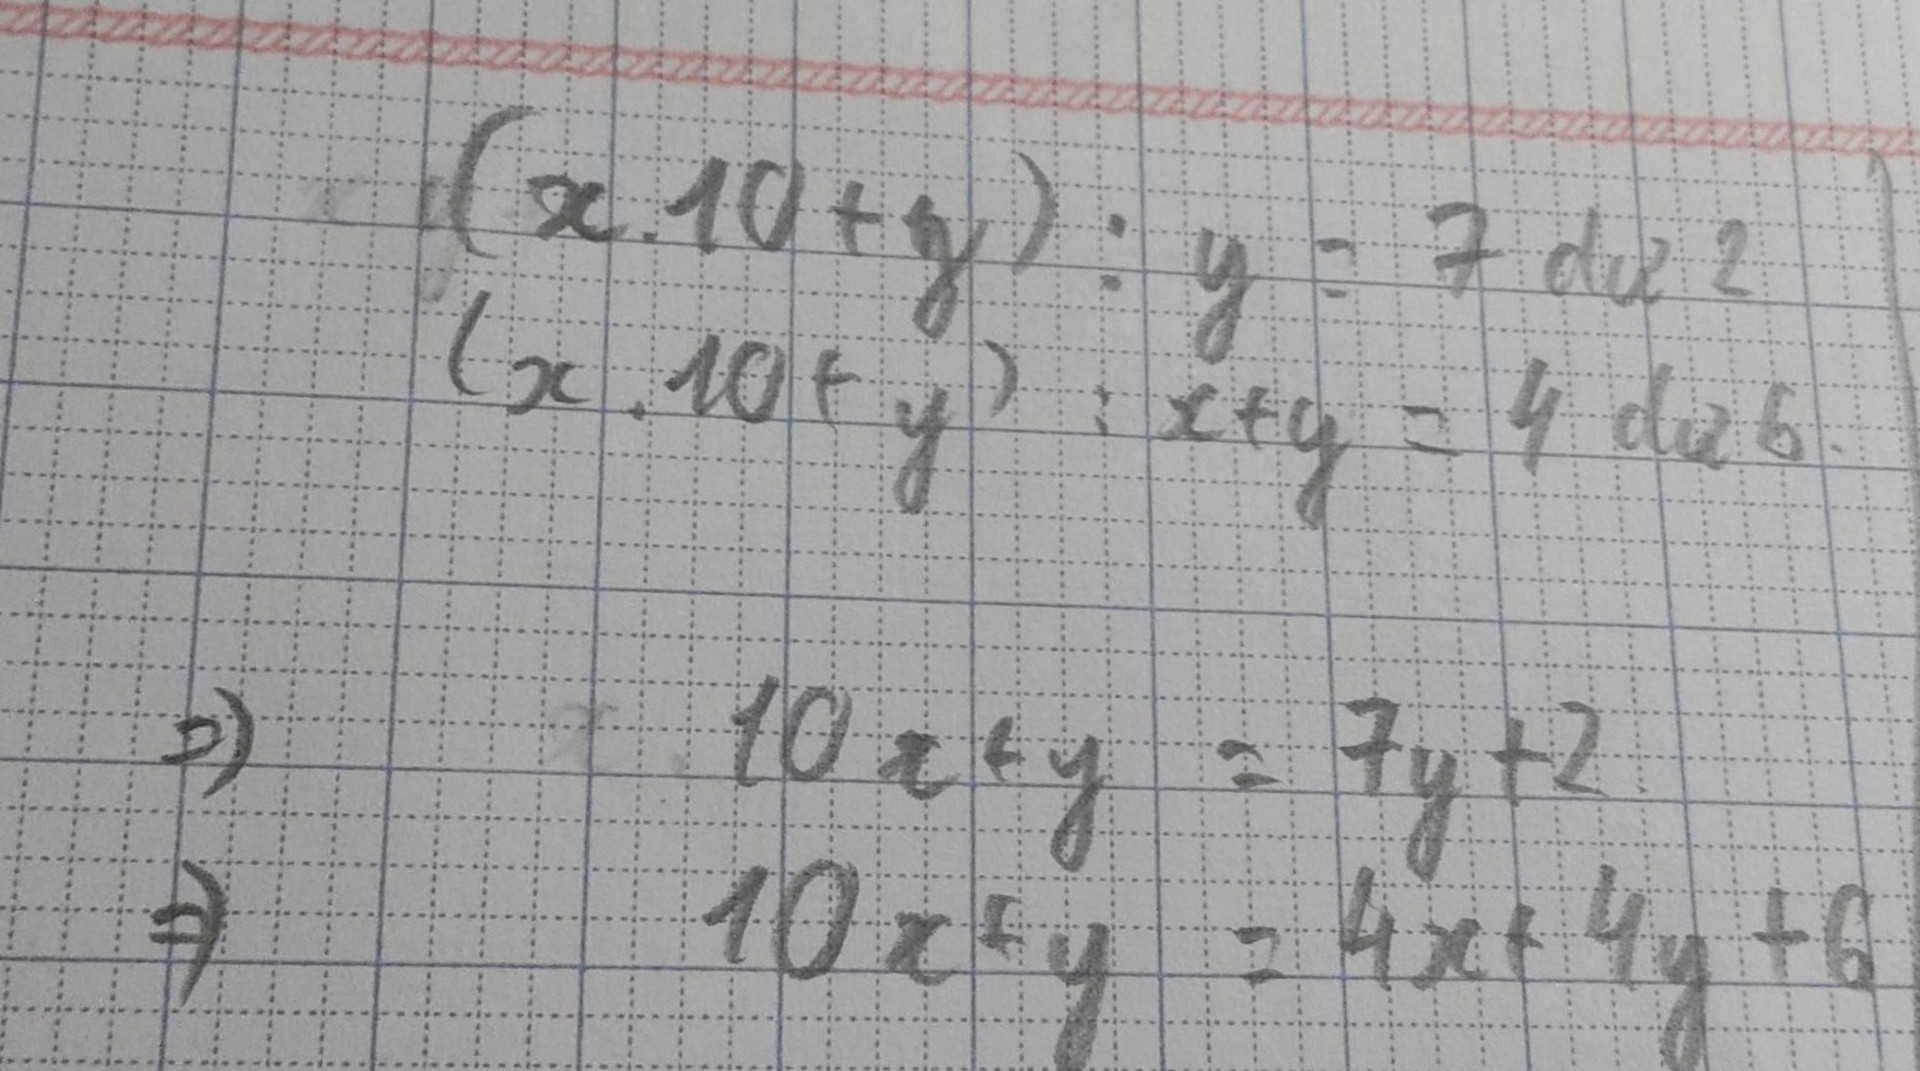 (x.10+y) : y = 7 dư 2
(x.10+y) : x+y = 4 dư 6.
=) 10x+y = 7y+2
=) 10x+y = 4x+4y+6